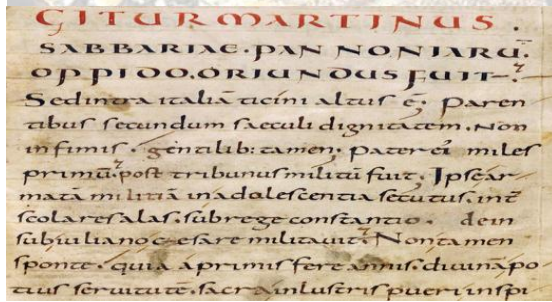 GITUR MARTINUS.
SABBARIAE·PANNONIARŪ·
OPPIDO·ORIUNDUS FUIT·
Sed intra italiā ticini altus ē· Paren
tibus secundum saeculi dignitatem· Non
infimis· gentilib: tamen· Pater ei miles
primū·post tribunus militū fuit· Ipse ar
matā militiā in adolescentia secutus· int̄
scolares alas· sub rege constantio· dein
sub iuliano caesare militauit· Non tamen
sponte· quia a primis fere annis· diuinā po
tius seruitutē· sacra inlustris pueri inspi